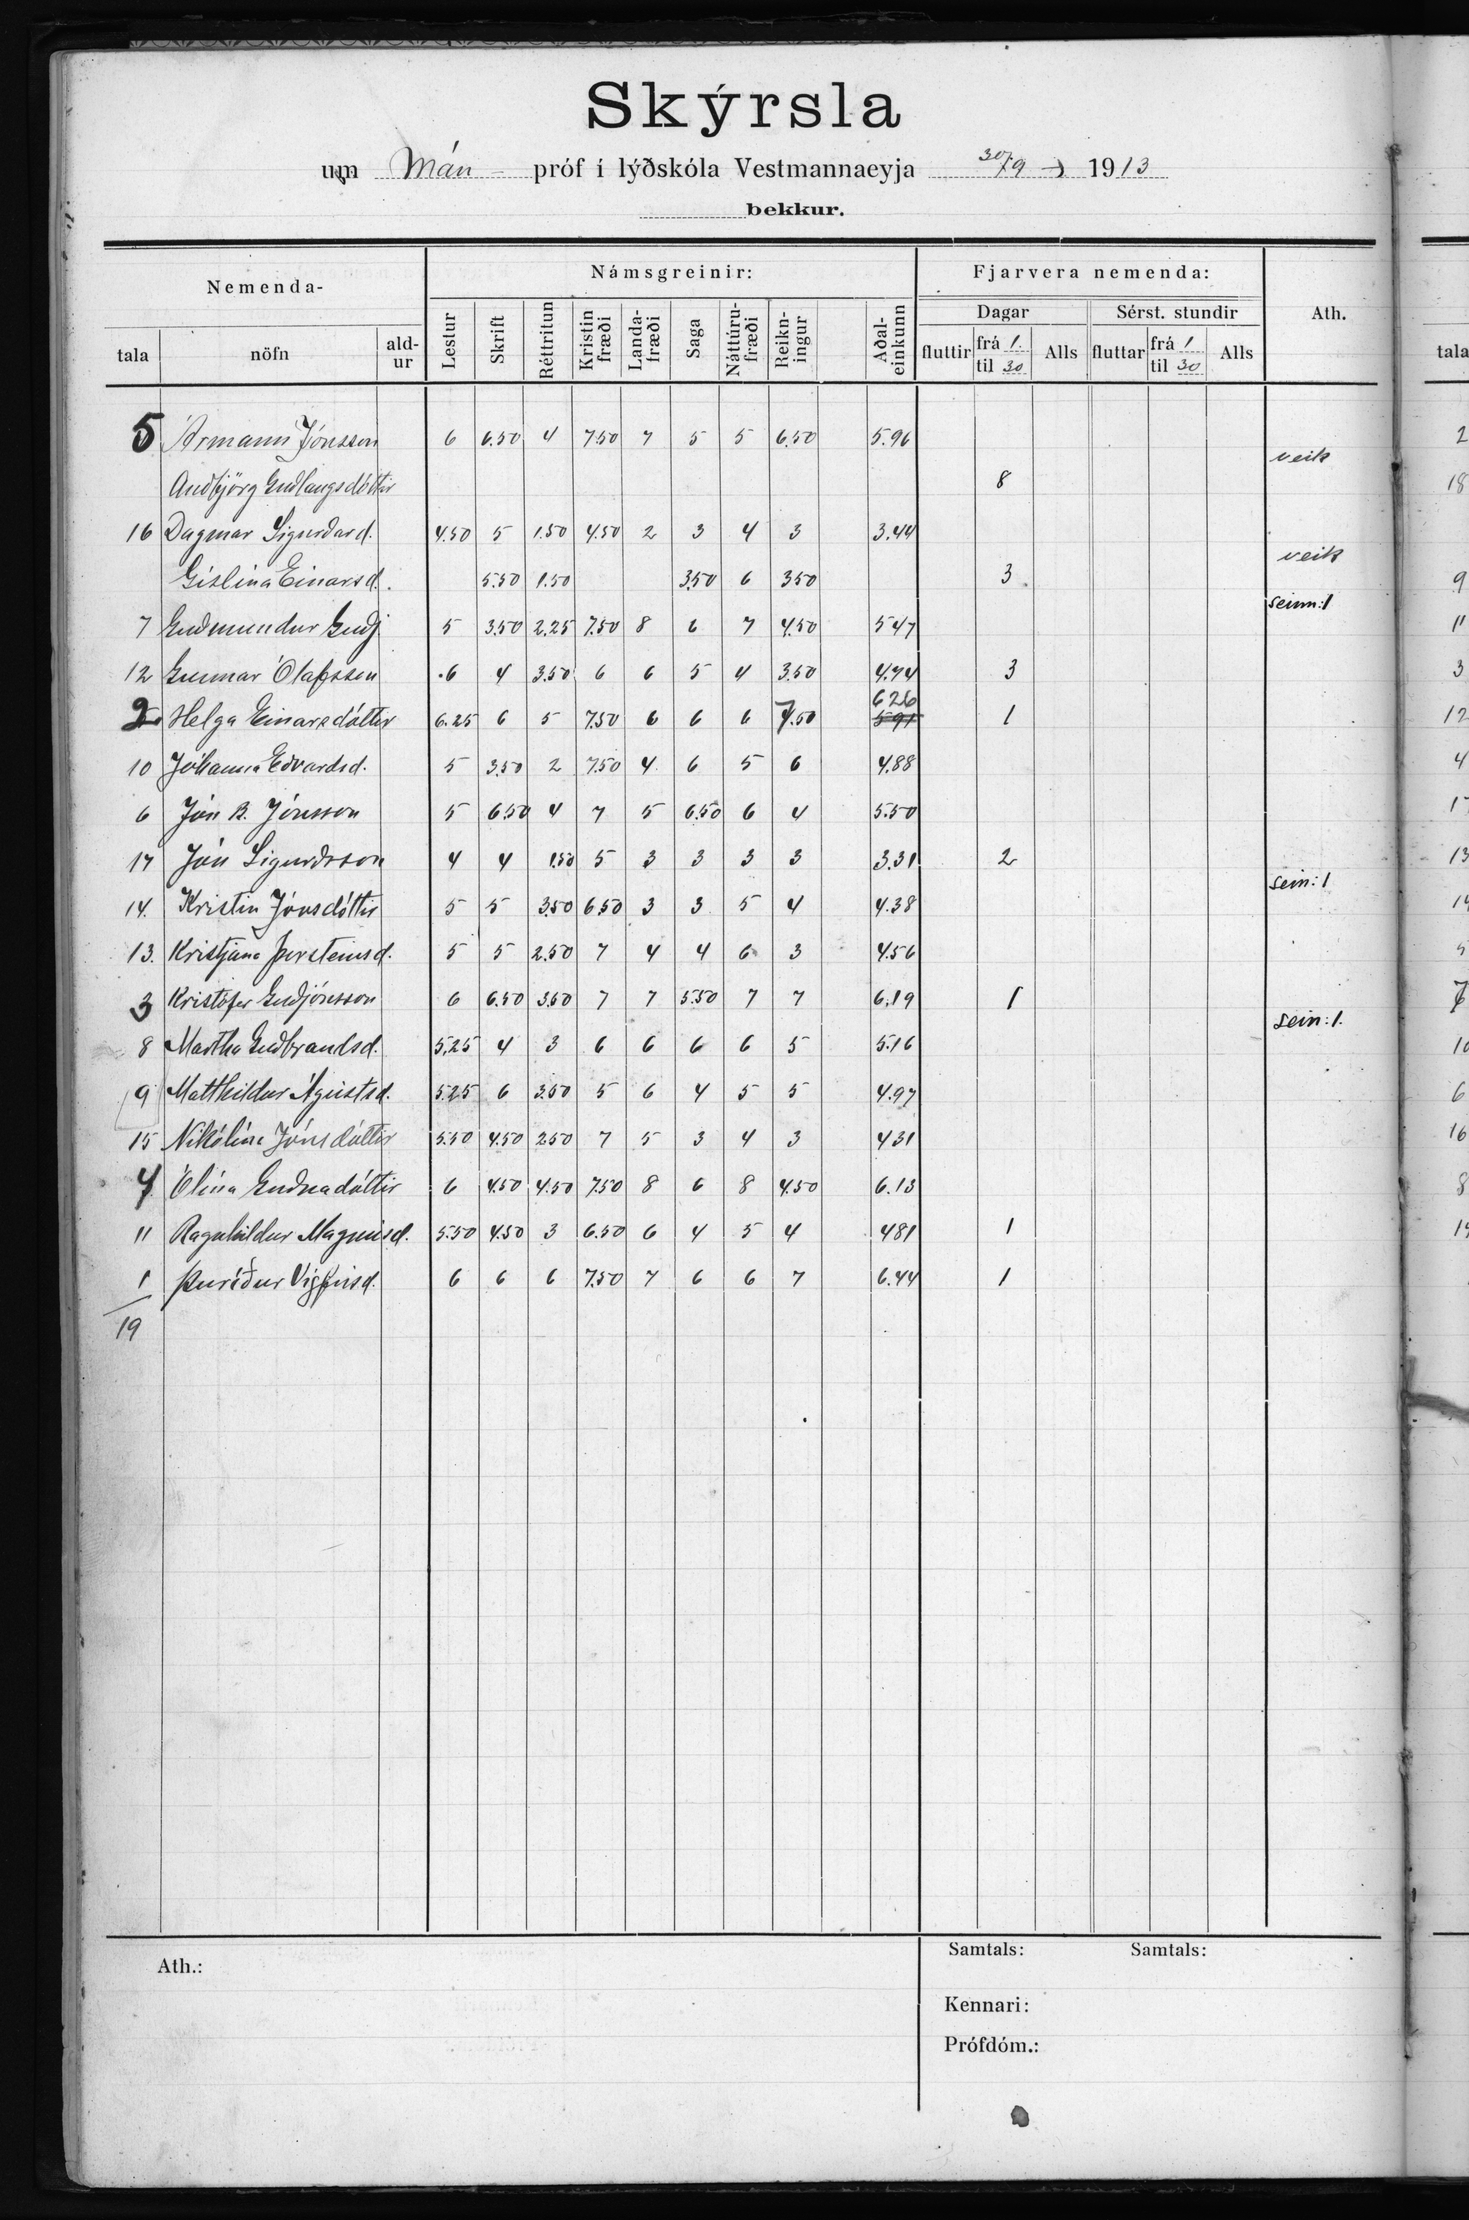 Skýrsla
um Mán - próf í lýðskóla Vestmannaeyja 30/9 1913
bekkur.
Nemenda- Námsgreinir: Fjarvera nemenda: Ath.
Dagar Sérst. stundir
tala nöfn ald-ur Lestur Skrift Réttritun Kristin fræði Landa-fræði Saga Náttúru-fræði Reikn-ingur Aðal-einkunn fluttir frá 1. til 30 Alls fluttar frá 1 til 30 Alls tala
5 Ármann Jónsson 6 6.50 4 7.50 7 5 5 6.50 5.96 2
Auðbjörg Guðlaugsdóttir 8 veik 18
16 Dagmar Sigurðard. 4.50 5 1.50 4.50 2 3 4 3 3.44
Gíslína Einarsd. 5.50 1.50 3.50 6 3.50 3 veik 9
7 Guðmundur Guðj 5 3.50 2.25 7.50 8 6 7 4.50 547 seinn:1 11
12 Gunnar Ólafsson 6 4 3.50 6 6 5 4 3.50 4.74 3 3
2 Helga Einarsdóttir 6.25 6 5 7.50 6 6 6 7.50 626 591 1 12
10 Jóhanna Eðvardsd. 5 3.50 2 7.50 4 6 5 6 4.88 4
6 Jón B. Jónsson 5 6.50 4 7 5 6.50 6 4 5.50
17 Jón Sigurðsson 4 4 1.50 5 3 3 3 3 3.31 2 13
14. Kristín Jónsdóttir 5 5 3.50 6.50 3 3 5 4 4.38 sein:1 14
13. Kristjana Þorsteinsd. 5 5 2.50 7 4 4 6 3 4.56 5
3 Kristófer Guðjónsson 6 6.50 3.50 7 7 5.50 7 7 6.19 1
8 Martha Guðbrandsd. 5.25 4 3 6 6 6 6 5 5.16 sein:1. 10
9 Matthildur Ágústsd. 5.25 6 3.50 5 6 4 5 5 4.97 6
15 Nikólína Jónsdóttir 5.50 4.50 2.50 7 5 3 4 3 431 16
4 Ólína Guðnadóttir 6 4.50 4.50 7.50 8 6 8 4.50 6.13 8
11 Ragnhildur Magnúsd. 5.50 4.50 3 6.50 6 4 5 4 481 1
1 Þuríður Vigfúsd. 6 6 6 7.50 7 6 6 7 6.44 1
19
Ath.: Samtals: Samtals:
Kennari:
Prófdóm.: